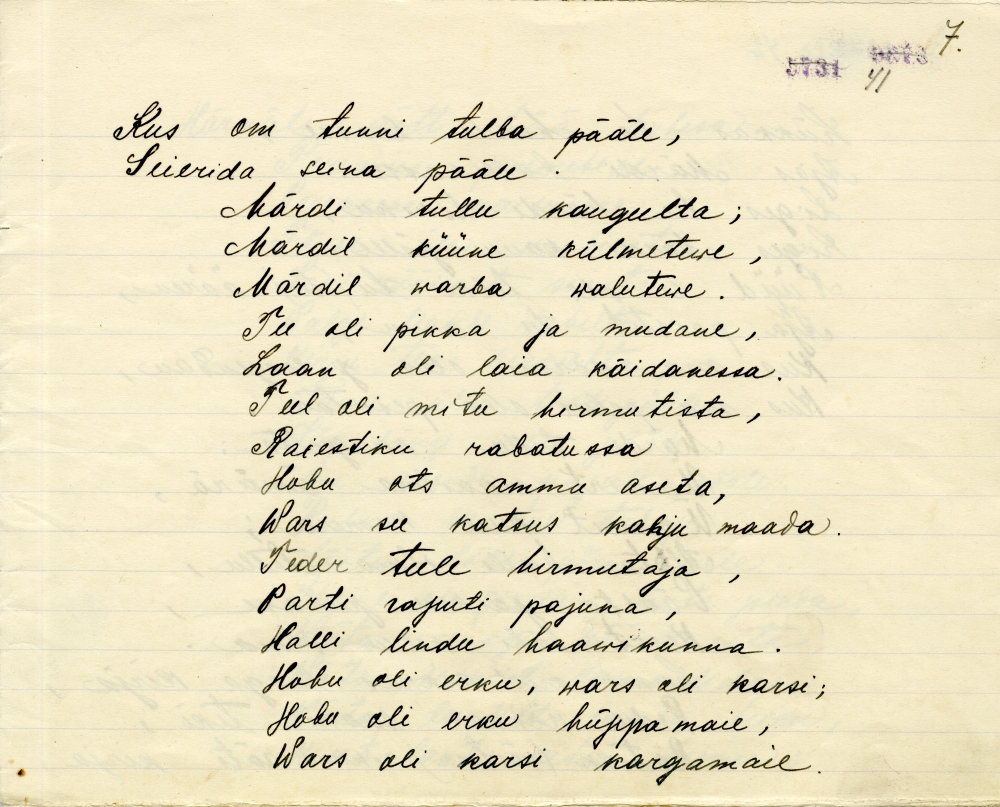 7.
5731
41
Kus om tunni tulba pääle,
Seierida seina pääle.
Märdi tullu kaugulta;
Märdil küüne külmetewe,
Märdil warba walutewe.
Tee oli pikka ja mudane,
Laan oli laia käidanessa.
Teel oli mitu hirmutista,
Raiestiku rabatussa
Hobu ots ammu aseta,
Wars see katsus kahju maada.
Teder tule hirmutaja,
Parti raputi pajuna,
Halli lindu haawikunna.
Hobu oli erku, wars oli karsi;
Hobu oli erku hüppamaie,
Wars oli karsi kargamaie.